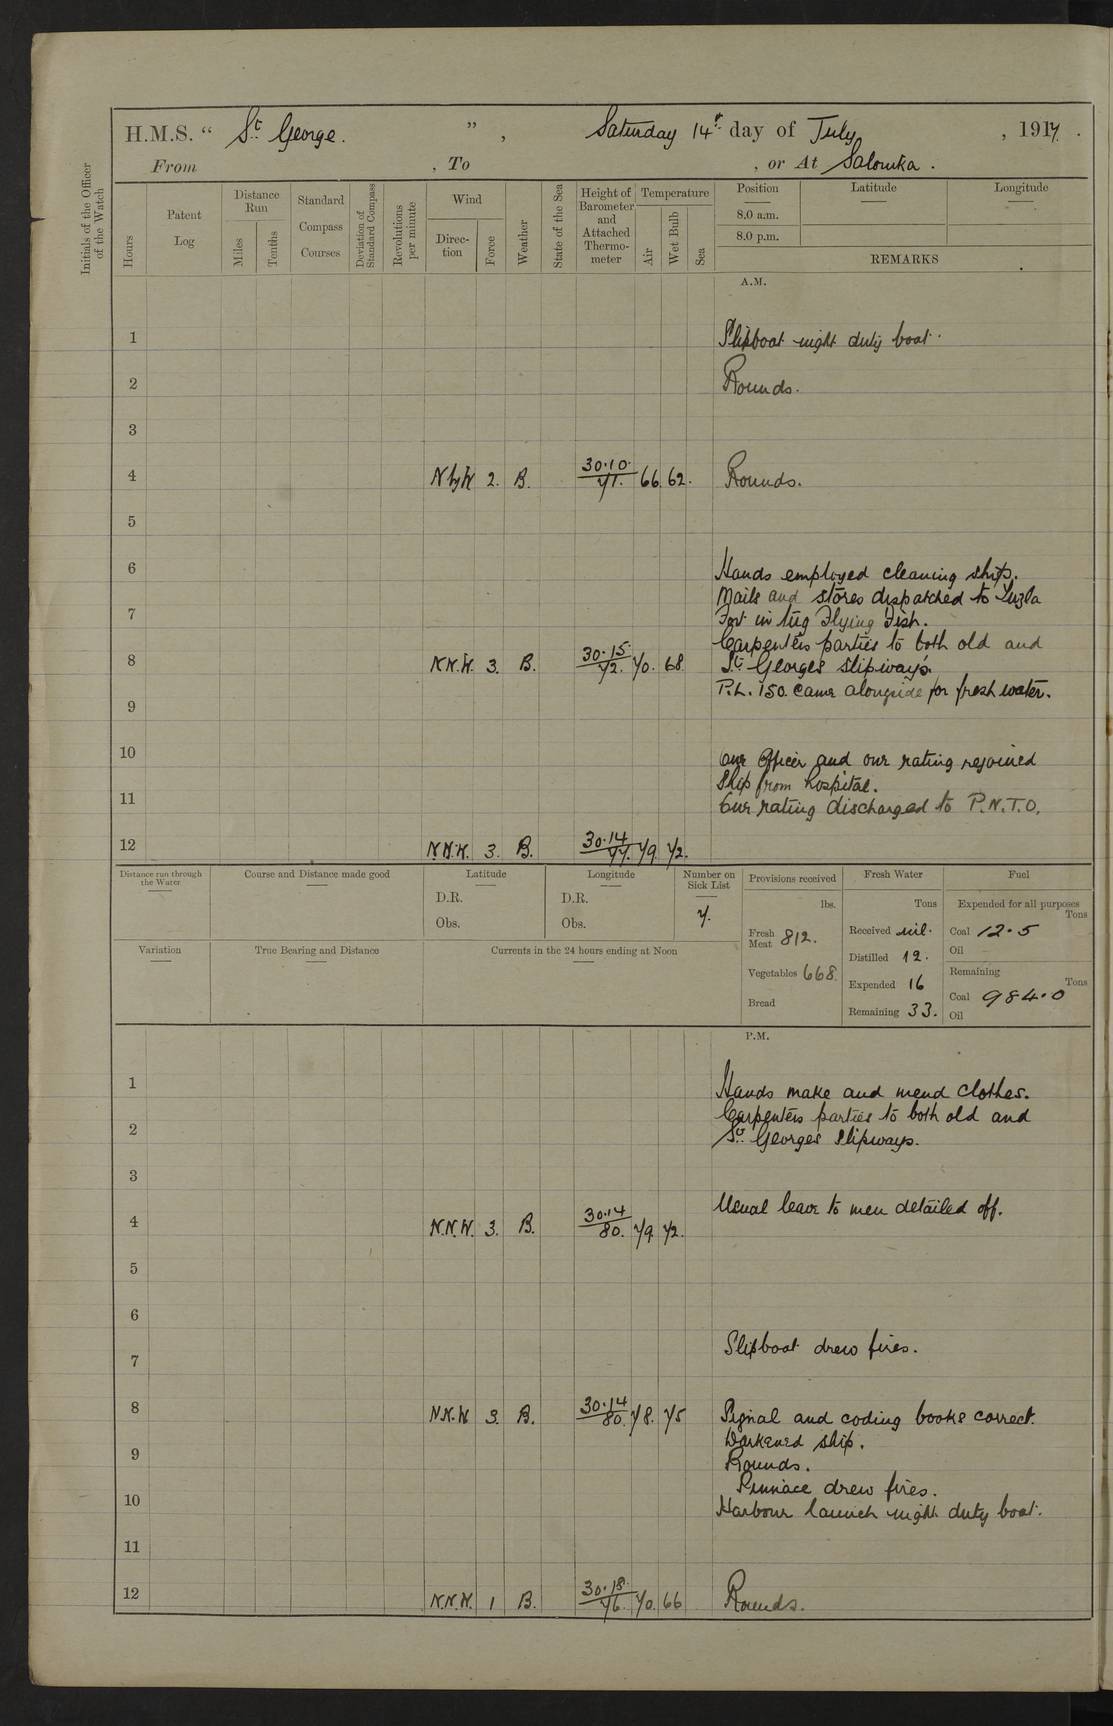 H.M.S. " St George. ", Saturday 14th day of July, 1917.
From , To , or At Salonika.
Initials of the Officer of the Watch
Hours
Patent Log
Distance Run
Miles
Tenths
Standard Compass Courses
Deviation of Standard Compass
Revolutions per minute
Wind
Direc-tion
Force
Weather
State of the Sea
Height of Barometer and Attached Thermo-meter
Temperature
Air
Wet Bulb
Sea
Position Latitude Longitude
8.0 a.m.
8.0 p.m.
REMARKS
A.M.
1 Slipboat night duty boat.
2 Rounds.
3
4 N by W 2. B. 30.10. 71. 66. 62. Rounds.
5
6 Hands employed cleaning ship.
Mails and stores dispatched to Tuzla
7 Fort in tug Flying Fish.
Carpenters parties to both old and
8 N.N.W. 3. B. 30.15. 72. 70. 68 St Georges slipways.
P.L. 150. came alongside for fresh water.
9
10 One Officer and one rating rejoined
ship from hospital.
11 One rating discharged to P.N.T.O.
12 N.N.W. 3. B. 30.14 77. 79. 72.
Distance run through the Water
Course and Distance made good
Latitude
D.R.
Obs.
Longitude
D.R.
Obs.
Number on Sick List
7.
Provisions received
lbs.
Fresh Meat 812.
Vegetables 668.
Bread
Fresh Water
Tons
Received nil.
Distilled 12.
Expended 16
Remaining 33.
Fuel
Expended for all purposes
Tons
Coal 12.5
Oil
Remaining
Tons
Coal 984.0
Oil
Variation
True Bearing and Distance
Currents in the 24 hours ending at Noon
P.M.
1 Hands make and mend clothes.
Carpenters parties to both old and
2 St Georges Slipways.
3
4 N.N.W. 3. B. 30.14 80. 79. 72. Usual leave to men detailed off.
5
6
7 Slipboat drew fires.
8 N.N.W 3. B. 30.14 80. 78. 75 Signal and coding books correct.
Darkened ship.
9 Rounds.
Pinnace drew fires.
10 Harbour launch night duty boat.
11
12 N.N.W. 1 B. 30.18. 76. 70. 66 Rounds.